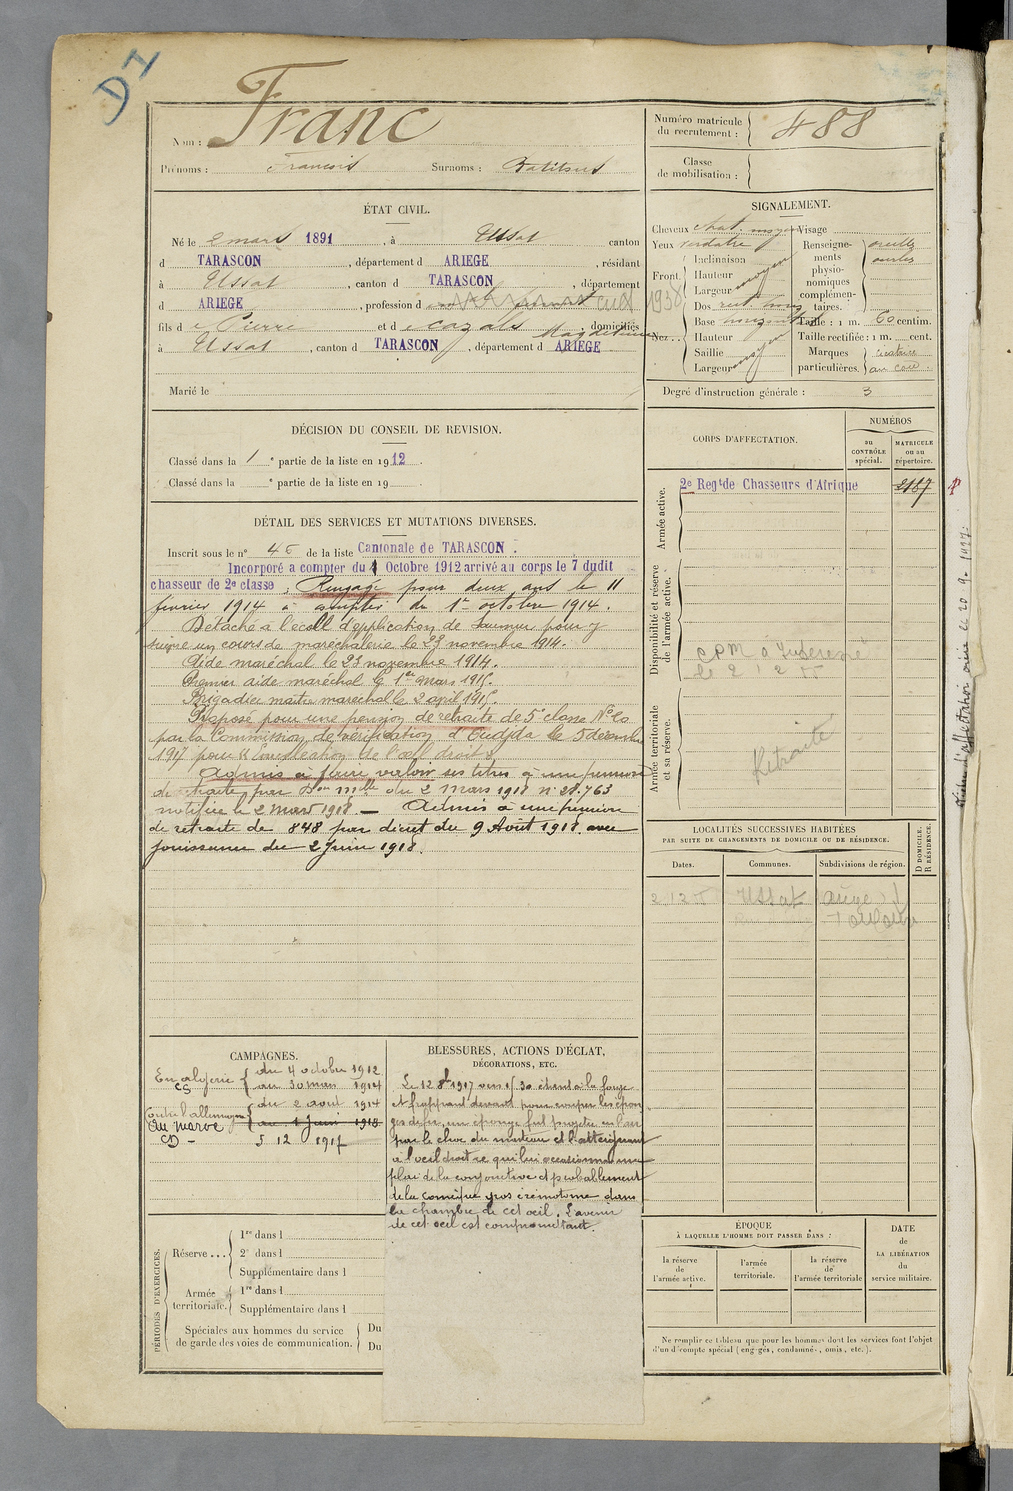 D I
Nom : Franc
Prénoms : François Surnoms : Batitsus
Numéro matricule
du recrutement : 488
Classe
de mobilisation :
ÉTAT CIVIL.
Né le 2 mars 1891, à Ussat canton
d TARASCON, département d ARIEGE, résidant
à Ussat, canton d TARASCON, département
d ARIEGE, profession d cult 1938
fils d e Pierre et d e Cazals Magdeleine domiciliés
à Ussat, canton d TARASCON, département d ARIEGE
Marié le
SIGNALEMENT.
Cheveux chat. moyen
Yeux verdâtre
Front
Inclinaison
Hauteur moyen
Largeur
Nez
Dos rect.
Base horizontale
Hauteur
Saillie moyen
Largeur
Visage
Renseigne-
ments
physio-
nomiques
complémen-
taires. oreilles
ourlées
Taille : 1 m. 60 centim.
Taille rectifiée : 1 m. cent.
Marques
particulières. cicatrice
au cou.
Degré d'instruction générale : 3
DÉCISION DU CONSEIL DE REVISION.
Classé dans la 1 e partie de la liste en 1912.
Classé dans la e partie de la liste en 19 .
DÉTAIL DES SERVICES ET MUTATIONS DIVERSES.
Inscrit sous le n° 46 de la liste Cantonale de TARASCON.
Incorporé a compter du 1 Octobre 1912 arrivé au corps le 7 dudit
chasseur de 2e classe, Rengagé pour deux ans le 11
février 1914 à compter du 1er octobre 1914.
Détaché a l'ecoll d'application de Saumur pour y
suivre un cours de maréchalerie le 23 novembre 1914.
Aide maréchal le 23 novembre 1914.
Premier aide maréchal le 1er mars 1915.
Brigadier maitre marechal le 2 avril 1915.
Proposé pour une pension de retraite de 5e classe N° 60
par la Commission de vérification d'Oudjda le 5 décembre
1917 pour "Enucléation de l'œil droit"
Admis à faire valoir ses titres à une pension
de retraite par Don Mlle du 2 mars 1918 n° 28.763
notifiée le 2 mars 1918 — Admis à une pension
de retraite de 848 par décret du 9 Août 1918 avec
jouissance du 2 Juin 1918.
CORPS D'AFFECTATION.
NUMÉROS
au
CONTRÔLE
spécial.
MATRICULE
ou au
répertoire.
Armée active.
2e Regt de Chasseurs d'Afrique 2187 P
Disponibilité et réserve
de l'armée active.
Armée territoriale
et sa réserve.
Retraité
LOCALITÉS SUCCESSIVES HABITÉES
PAR SUITE DE CHANGEMENTS DE DOMICILE OU DE RÉSIDENCE.
Dates. Communes. Subdivisions de région.
D DOMICILE.
R RÉSIDENCE.
Ussat
Toulouse
CAMPAGNES.
En algérie du 4 octobre 1912
CS au 30 mars 1914
Contre l'allemagne du 2 aout 1914
au 1 Juin 1918
Au Maroc 5 12 1917
CD -
BLESSURES, ACTIONS D'ÉCLAT,
DÉCORATIONS, ETC.
Le 12 8b 1917 vers 15.30 étant à la forge
et frappant devant pour couper les épon
ges de fer, une éponge fut projetée en l'air
par le choc du marteau et l'atteignant
à l'oeil droit ce qui lui occasionna une
plaie de la conjonctive et probablement
de la cornée
la chambre de cet oeil. L'avenir
de cet oeil est compromettant.
PÉRIODES D'EXERCICES.
Réserve
1re dans l
2e dans l
Supplémentaire dans l
Armée
territoriale.
1re dans l
Supplémentaire dans l
Spéciales aux hommes du service
de garde des voies de communication.
Du
Du
ÉPOQUE
À LAQUELLE L'HOMME DOIT PASSER DANS :
la réserve
de
l'armée active.
l'armée
territoriale.
la réserve
de
l'armée territoriale
DATE
de
LA LIBÉRATION
du
service militaire.
Ne remplir ce tableau que pour les hommes dont les services font l'objet
d'un décompte spécial (engagés, condamnés, omis, etc.).